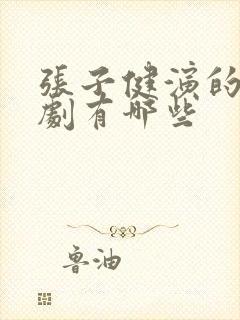 張子健演的
劇有哪些
魯油